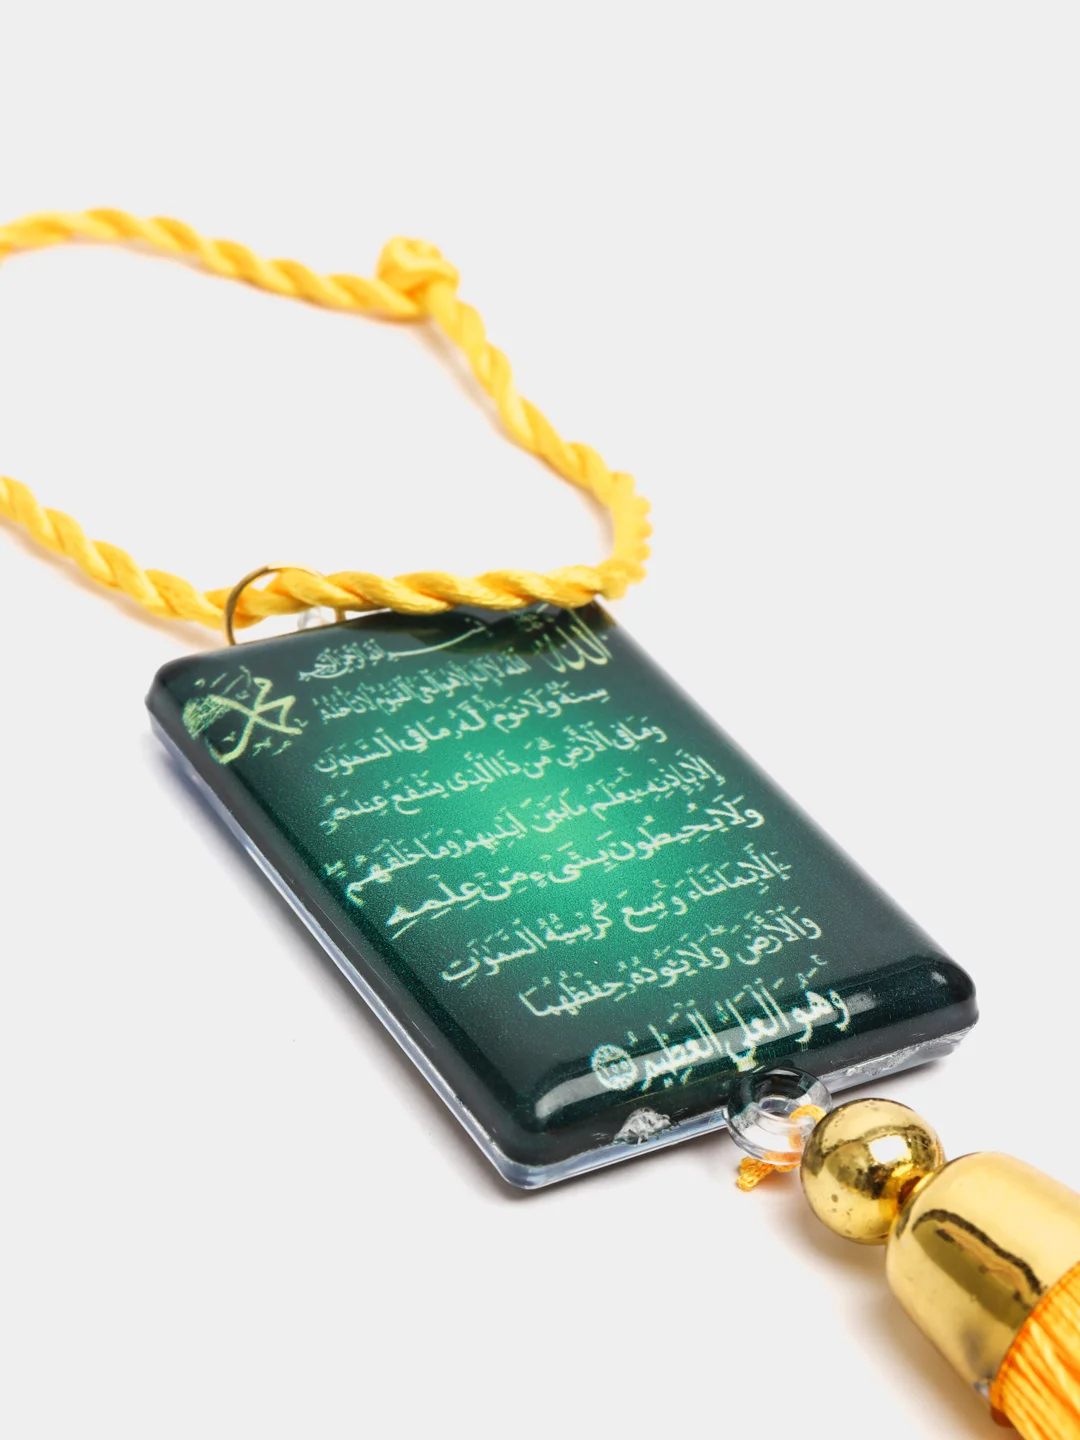 الله
محمد
بسم الله الرحمن الرحيم
اَللّٰهُ لَا إِلٰهَ إِلَّا هُوَ الْحَيُّ الْقَيُّومُ لَا تَأْخُذُهُ
سِنَةٌ وَلَا نَوْمٌ لَهُ مَا فِي السَّمٰوَاتِ
وَمَا فِي الْأَرْضِ مَنْ ذَا الَّذِي يَشْفَعُ عِنْدَهُ
إِلَّا بِإِذْنِهِ يَعْلَمُ مَا بَيْنَ أَيْدِيهِمْ وَمَا خَلْفَهُمْ
وَلَا يُحِيطُونَ بِشَيْءٍ مِنْ عِلْمِهِ
إِلَّا بِمَا شَاءَ وَسِعَ كُرْسِيُّهُ السَّمٰوَاتِ
وَالْأَرْضَ وَلَا يَئُودُهُ حِفْظُهُمَا
وَهُوَ الْعَلِيُّ الْعَظِيمُ